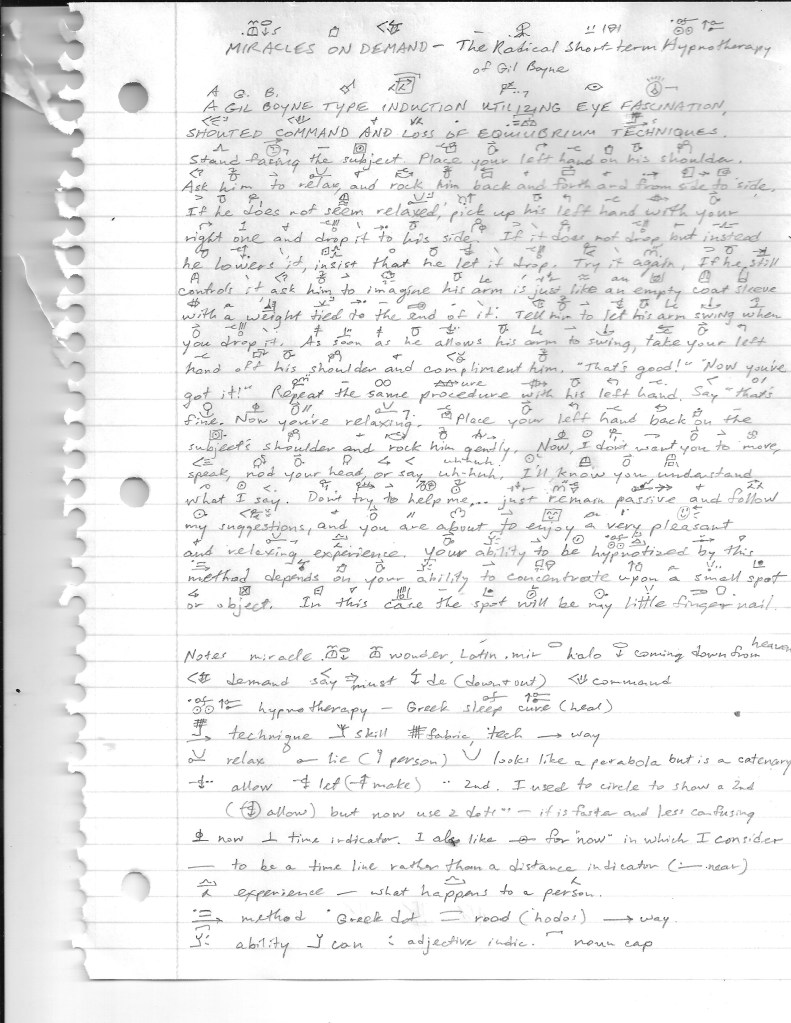 MIRACLES ON DEMAND - The Radical Short term Hypnotherapy
of Gil Boyne
A G. B.
A GIL BOYNE TYPE INDUCTION UTILIZING EYE FASCINATION,
SHOUTED COMMAND AND LOSS OF EQUILIBRIUM TECHNIQUES.
Stand facing the subject. Place your left hand on his shoulder.
Ask him to relax, and rock him back and forth and from side to side.
If he does not seem relaxed, pick up his left hand with your
right one and drop it to his side. If it does not drop but instead
he lowers it, insist that he let it drop. Try it again. If he still
controls it ask him to imagine his arm is just like an empty coat sleeve
with a weight tied to the end of it. Tell him to let his arm swing when
you drop it. As soon as he allows his arm to swing, take your left
hand off his shoulder and compliment him. "That's good!" "Now you've
got it!" Repeat the same procedure with his left hand. Say "that's
fine. Now you're relaxing. Place your left hand back on the
subject's shoulder and rock him gently. Now, I don't want you to move,
speak, nod your head, or say uh-huh. I'll know you understand
what I say. Don't try to help me,.. just remain passive and follow
my suggestions, and you are about to enjoy a very pleasant
and relaxing experience. Your ability to be hypnotized by this
method depends on your ability to concentrate upon a small spot
or object. In this case the spot will be my little finger nail.
Notes miracle wonder, Latin mir halo coming down from heaven
demand say must de (down + out) command
hypnotherapy - Greek sleep cure (heal)
technique skill # fabric, tech → way
relax lie (person) looks like a parabola but is a catenary
allow let (make) 2nd. I used to circle to show a 2nd
(allow) but now use 2 dots - it is faster and less confusing
now ⊥ time indicator. I also like for "now" in which I consider
— to be a time line rather than a distance indicator (near)
experience - what happens to a person.
method Greek dot = road (hodos) → way.
ability can : adjective indic. noun cap